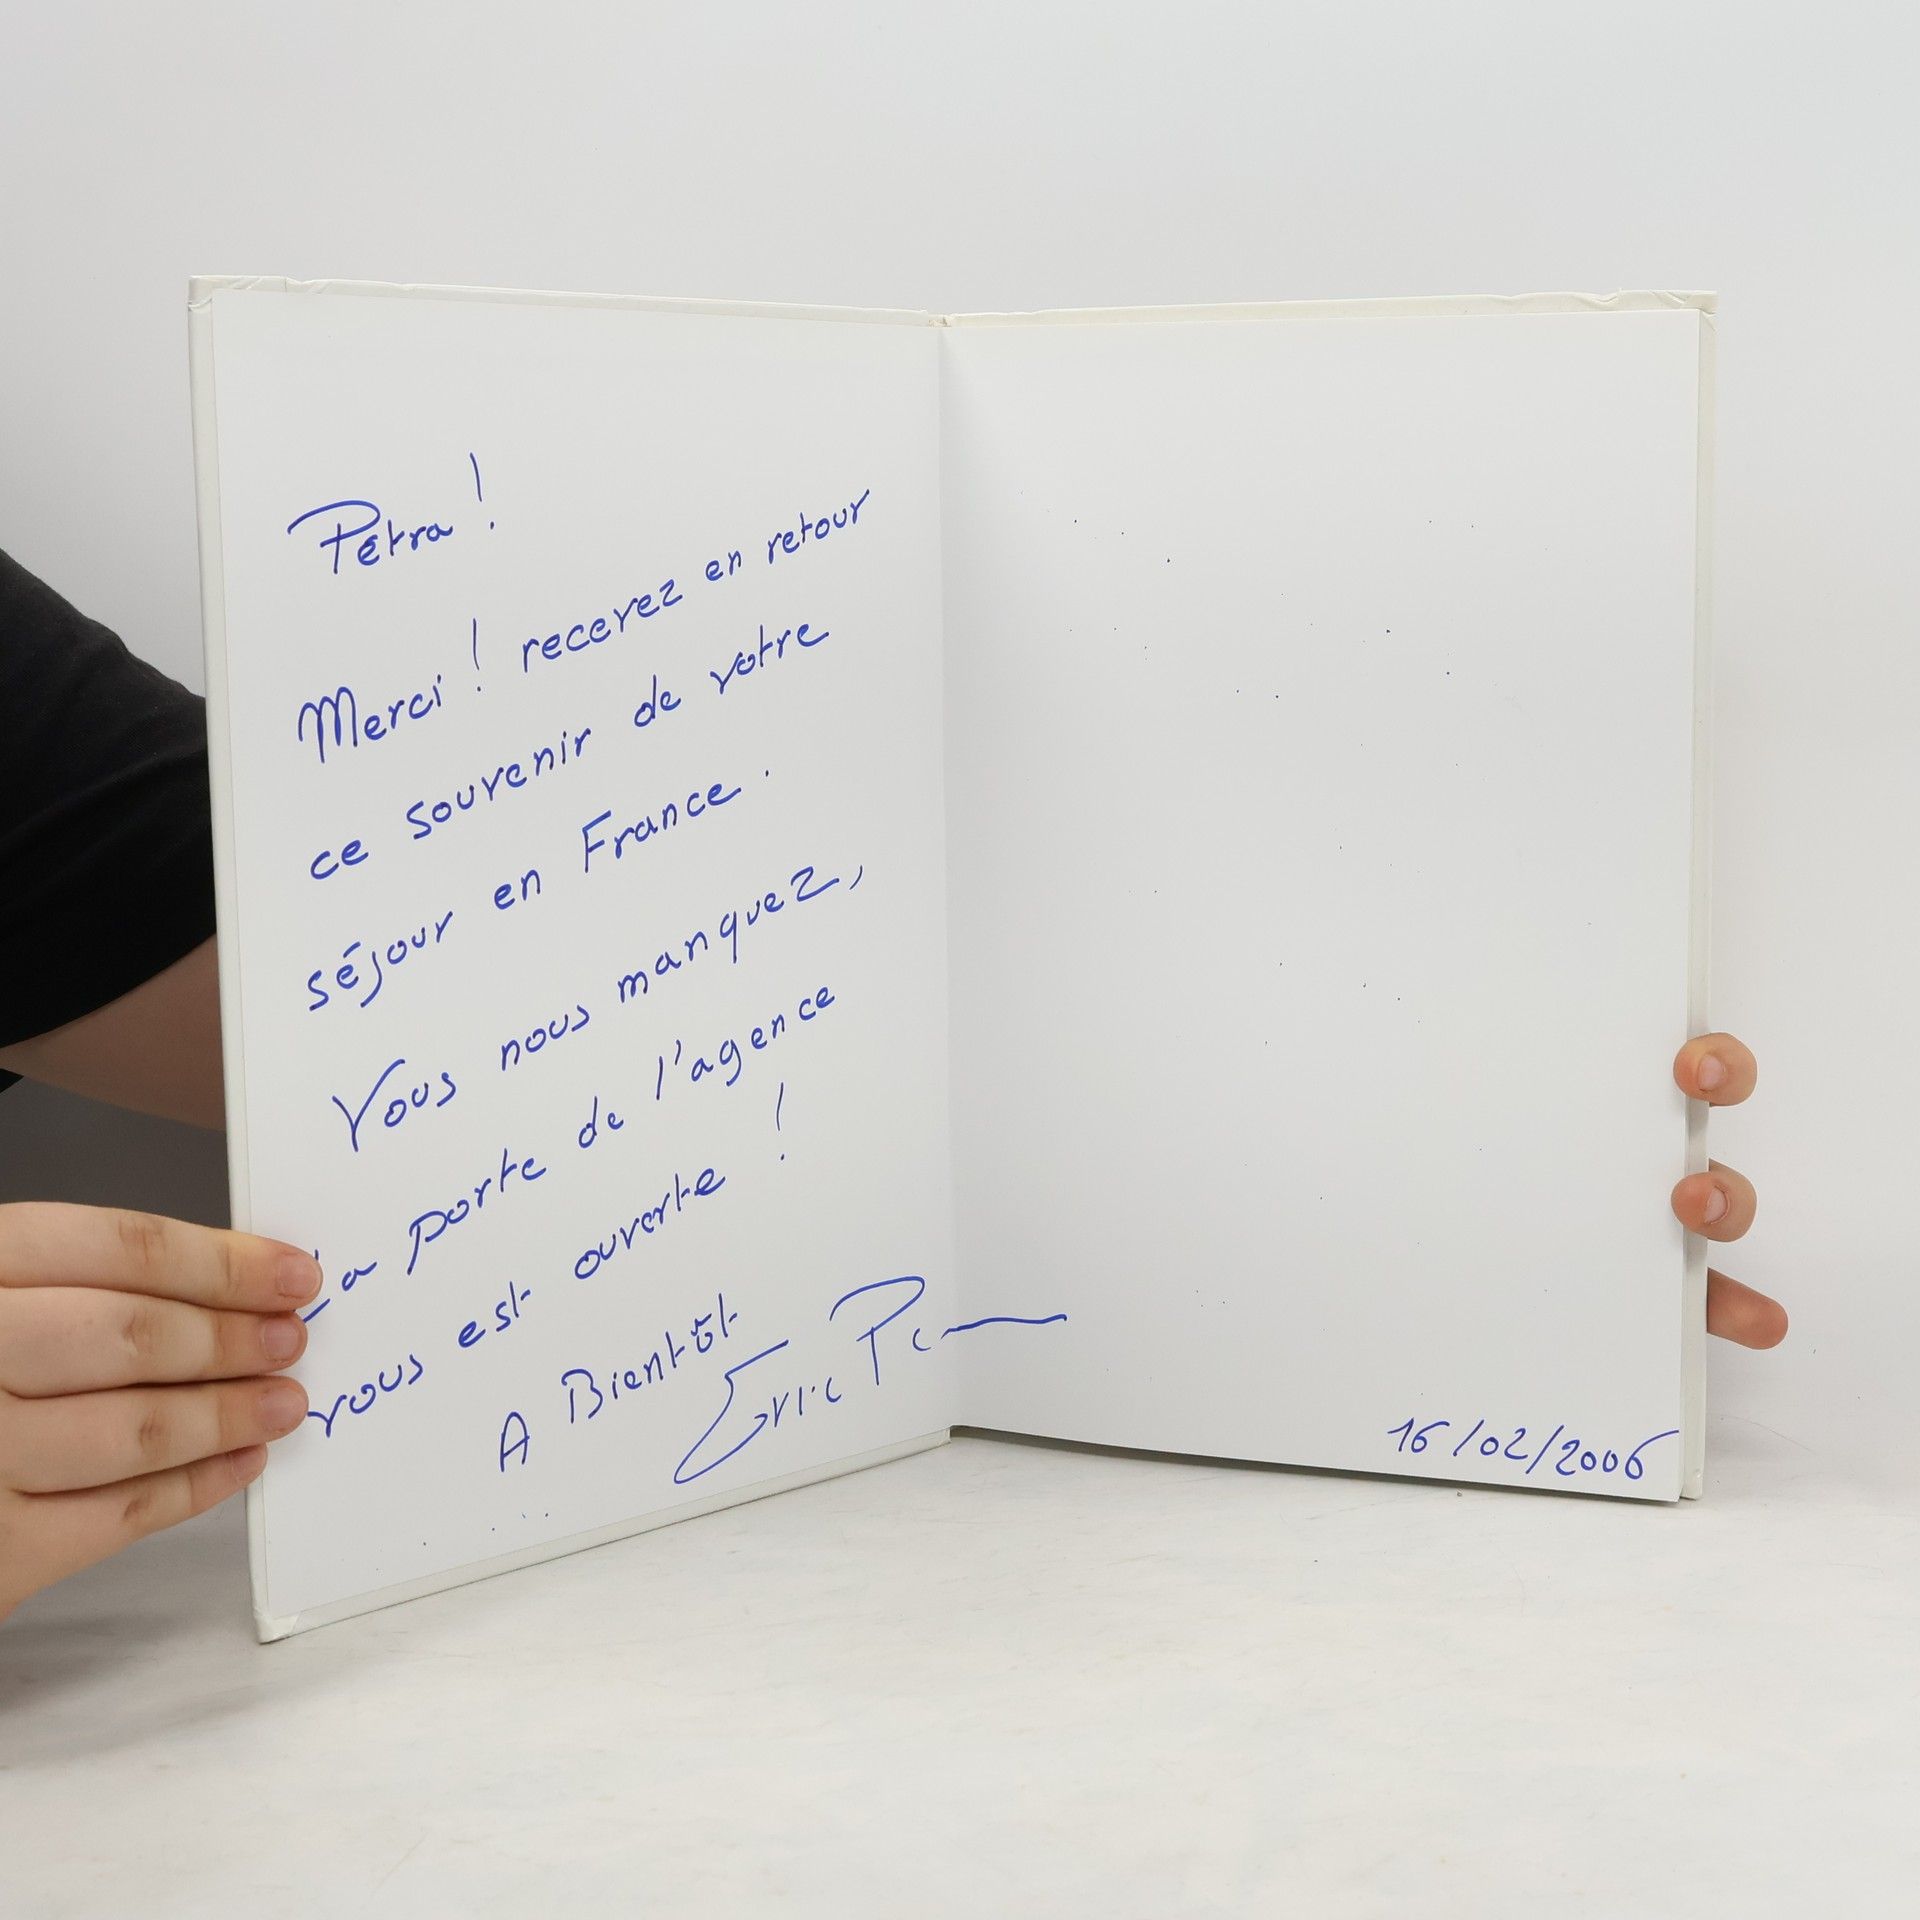 Petra !
Merci ! recevez en retour
ce souvenir de votre
séjour en France .
Vous nous manquez,
La porte de l'agence
vous est ouverte !
A Bientôt
Eric
16/02/2006